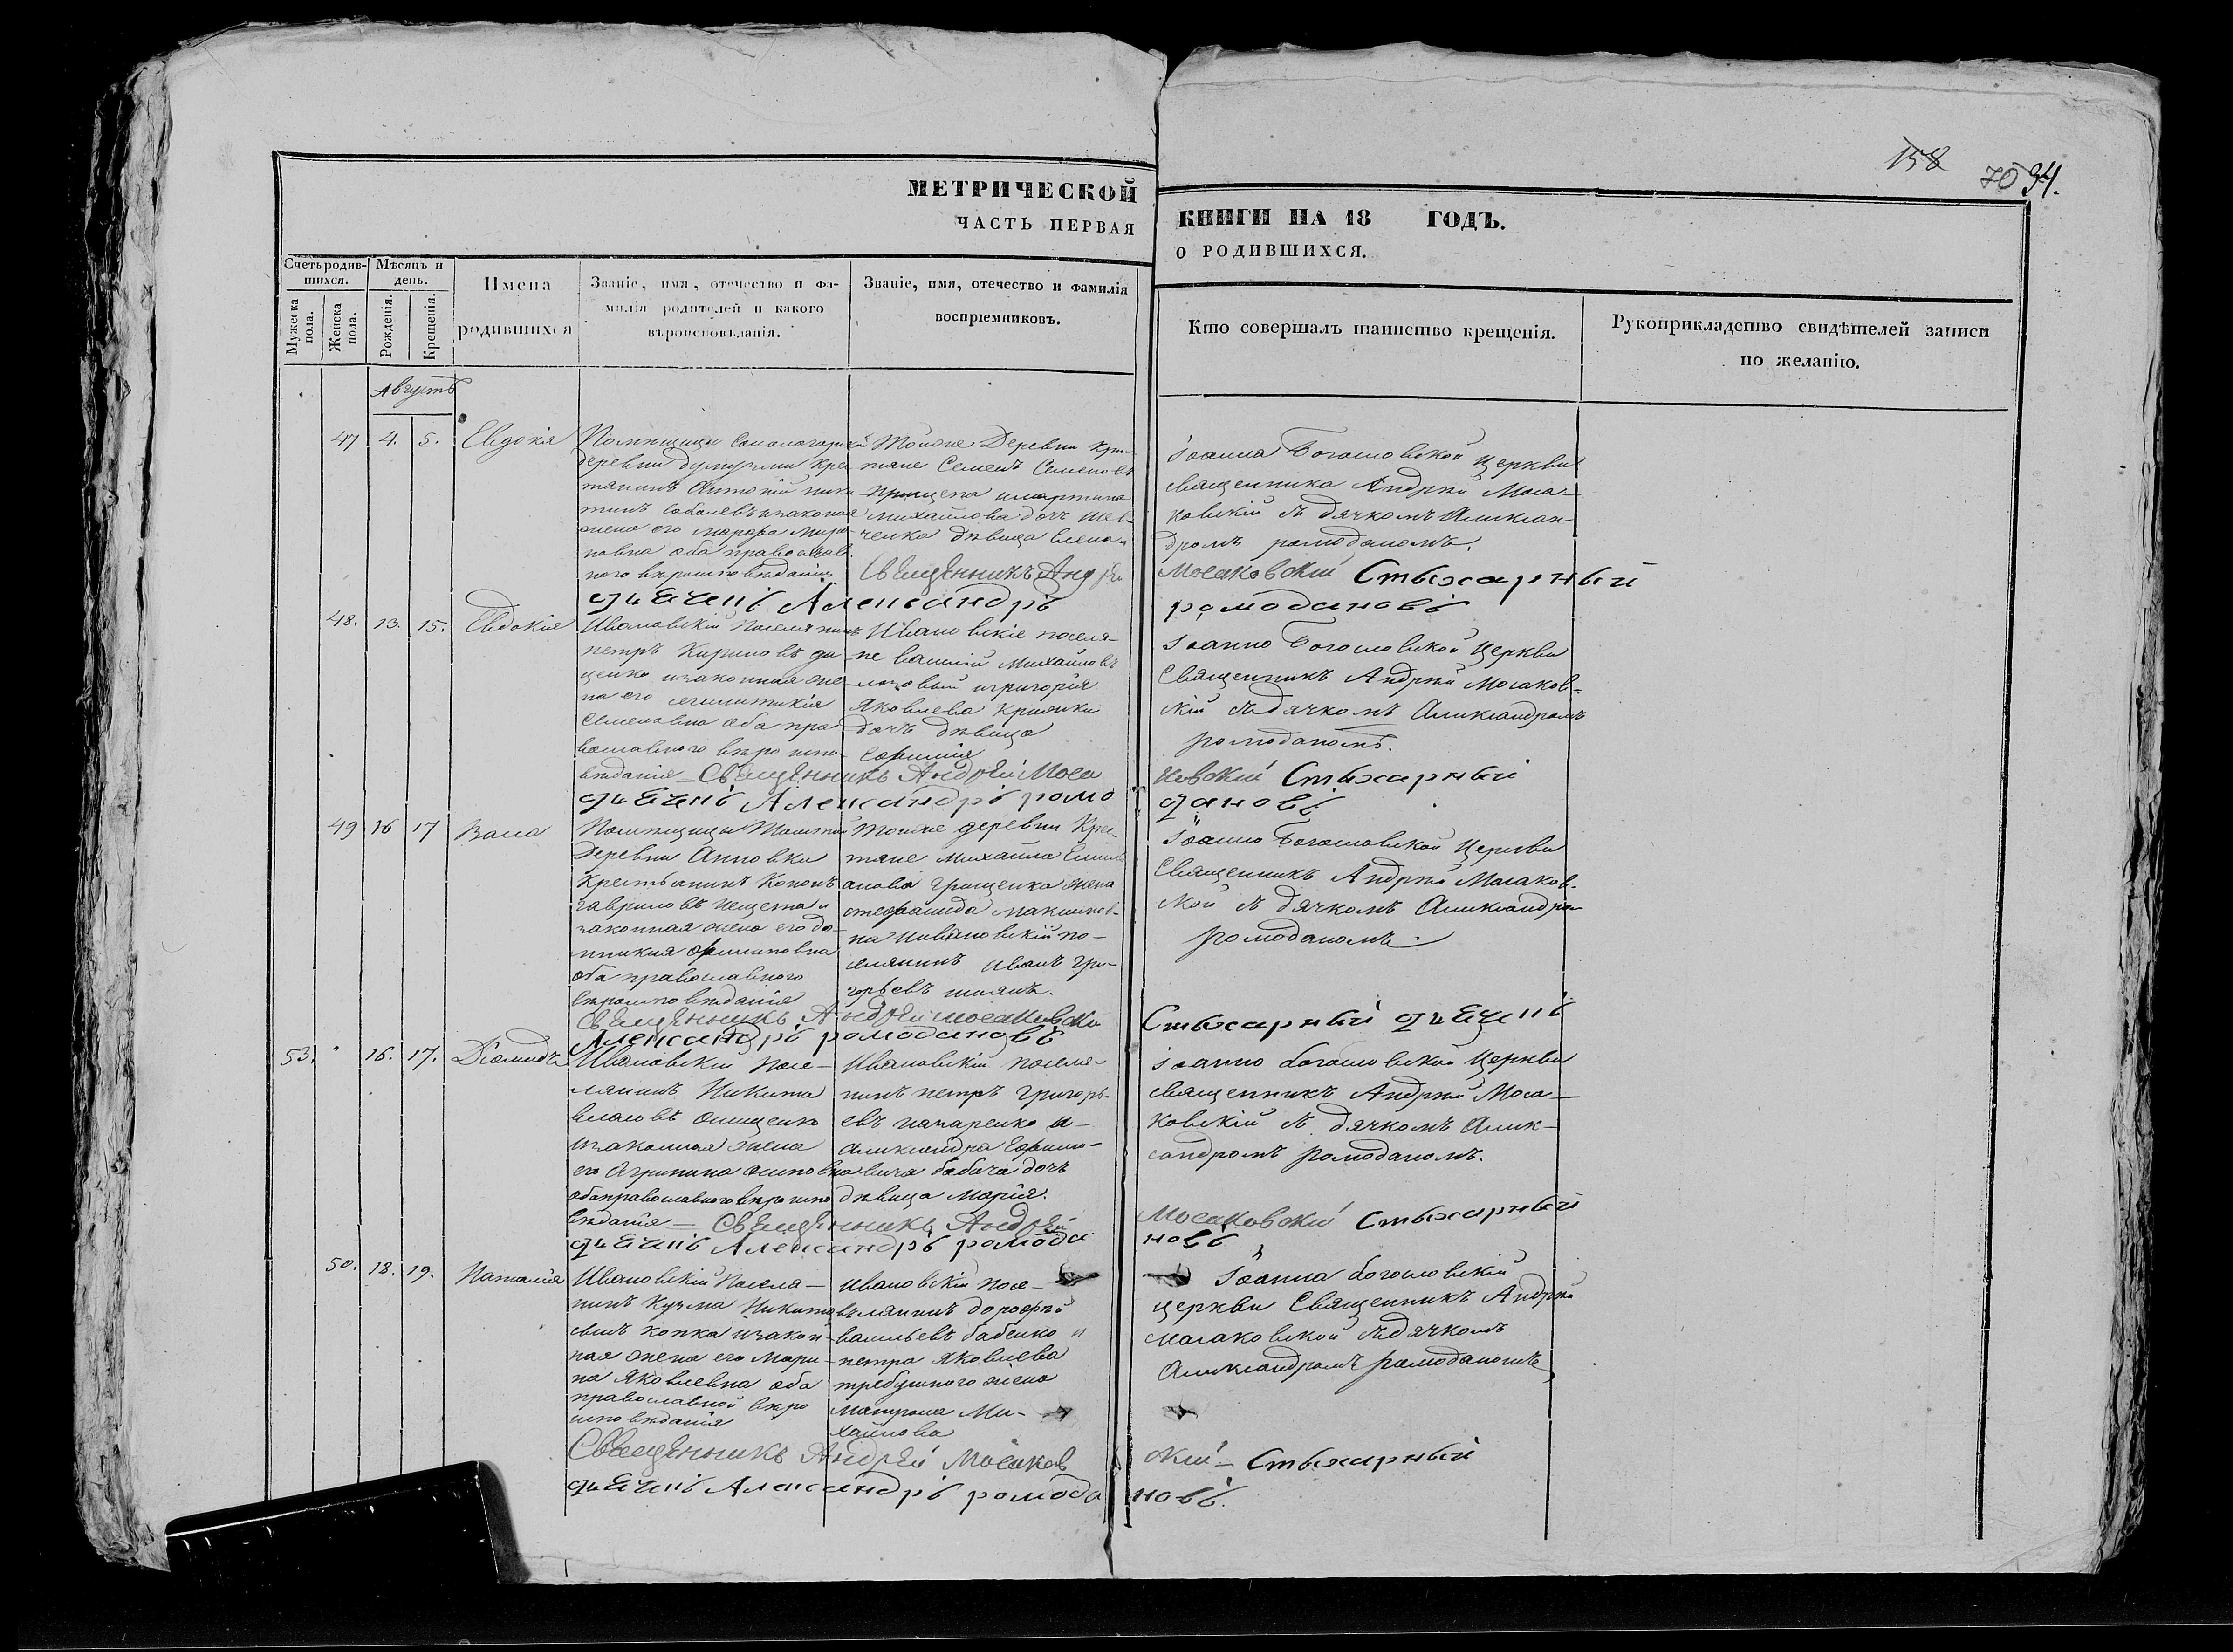 158 70 94.
МЕТРИЧЕСКОЙ
ЧАСТЬ ПЕРВАЯ
КНИГИ НА 18 ГОДЪ.
О РОДИВШИХСЯ.
Счетъ родив-
шихся.
Мужеска пола.
Женска пола.
Мѣсяцъ и
день.
Рожденія.
Крещенія.
Имена
родившихся
Званіе, имя, отечество и фа-
милія родителей и какого
вѣроисповѣданія.
Званіе, имя, отечество и фамилія
воспріемниковъ.
Кто совершалъ таинство крещенія.
Рукоприкладство свидѣтелей записи
по желанію.
Августъ
47 4. 5. Евдокія
Помещицы
деревни Кре
тянинъ Антоній
законая
жена его Миро
новна оба православ
ного вероисповеданія
Тойже Деревни Кре
тяне Семенъ Семеновъ
Михайлова доч Шев
ченка девица Елена
Іоанна Богословской Церкви
священника Андрей Моса
ковскій съ дячкомъ Аликсан
дромъ ромоданомъ.
Священникъ Андрѣй Мосаковскій Стыхарный
дьячекъ Александръ ромодановъ
48. 13. 15. Евдокія
Ивановскій поселянинъ
петръ Кириловъ
ценко изаконная же
на его
Семеновна оба пра
вославного веро испо
веданія
Ивановскіе поселя
не Василій Михайловъ
игригорія
Яковлева
дочь девица
Іоанно Богословской Церкви
Священникъ Андрей Мосаков
скій съ дячкомъ Аликсандромъ
ромоданомъ.
Священникъ Андрей Мосаковскій Стыхарный
дьячекъ Александръ ромодановъ
49 16 17 Васа
Помещицы
Деревни Анновки
Крестьянинъ Кононъ
гавриловъ
законная жена его до
мникия
оба православного
вероисповеданія
тойже деревни Кре
тяне Михайла
грищенка жена
степанида максимов
на Ивановскій по
селянинъ Иванъ Гри
горьевъ
Іоанно Богословской Церкви
Священникъ Андрей Мосаков
ской съ дячкомъ Александром
ромоданомъ.
Священникъ Андрей Мосаковскій Стыхарный дьячекъ
Александръ ромодановъ
53. " 16. 17. Діомидъ
Ивановскій посе
лянинъ Никита
власовъ онищенко
изаконная жена
его Агрипина осиповна
обаправославноговеро испо
веданія
Ивановскій поселя
нинъ петръ григорь
евъ и
Аликсандра
бабича дочь
девица Марія.
іоанно богословской Церкви
священникъ Андрей Моса
ковскій съ дячкомъ Алик
сандромъ ромоданомъ.
Священникъ Андрей Мосаковскій Стыхарный
дьячекъ Александръ ромодановъ
50. 18. 19. Наталія
Ивановскій Поселя
нинъ Кузма Никита
изакон
ная жена его Мари
на Яковлевна оба
православной веро
исповеданія
Ивановскій посе
лянинъ дорофей
васильевъ бабенко и
петра Яковлева
требушного жена
Матрона Ми
хайлова
Іоанна богословскій
церкви Священникъ Андрей
мосаковской съ дячкомъ
Аликсандромъ ромоданомъ
Священникъ Андрей Мосаковскій Стыхарный
дьячекъ Александръ ромодановъ.